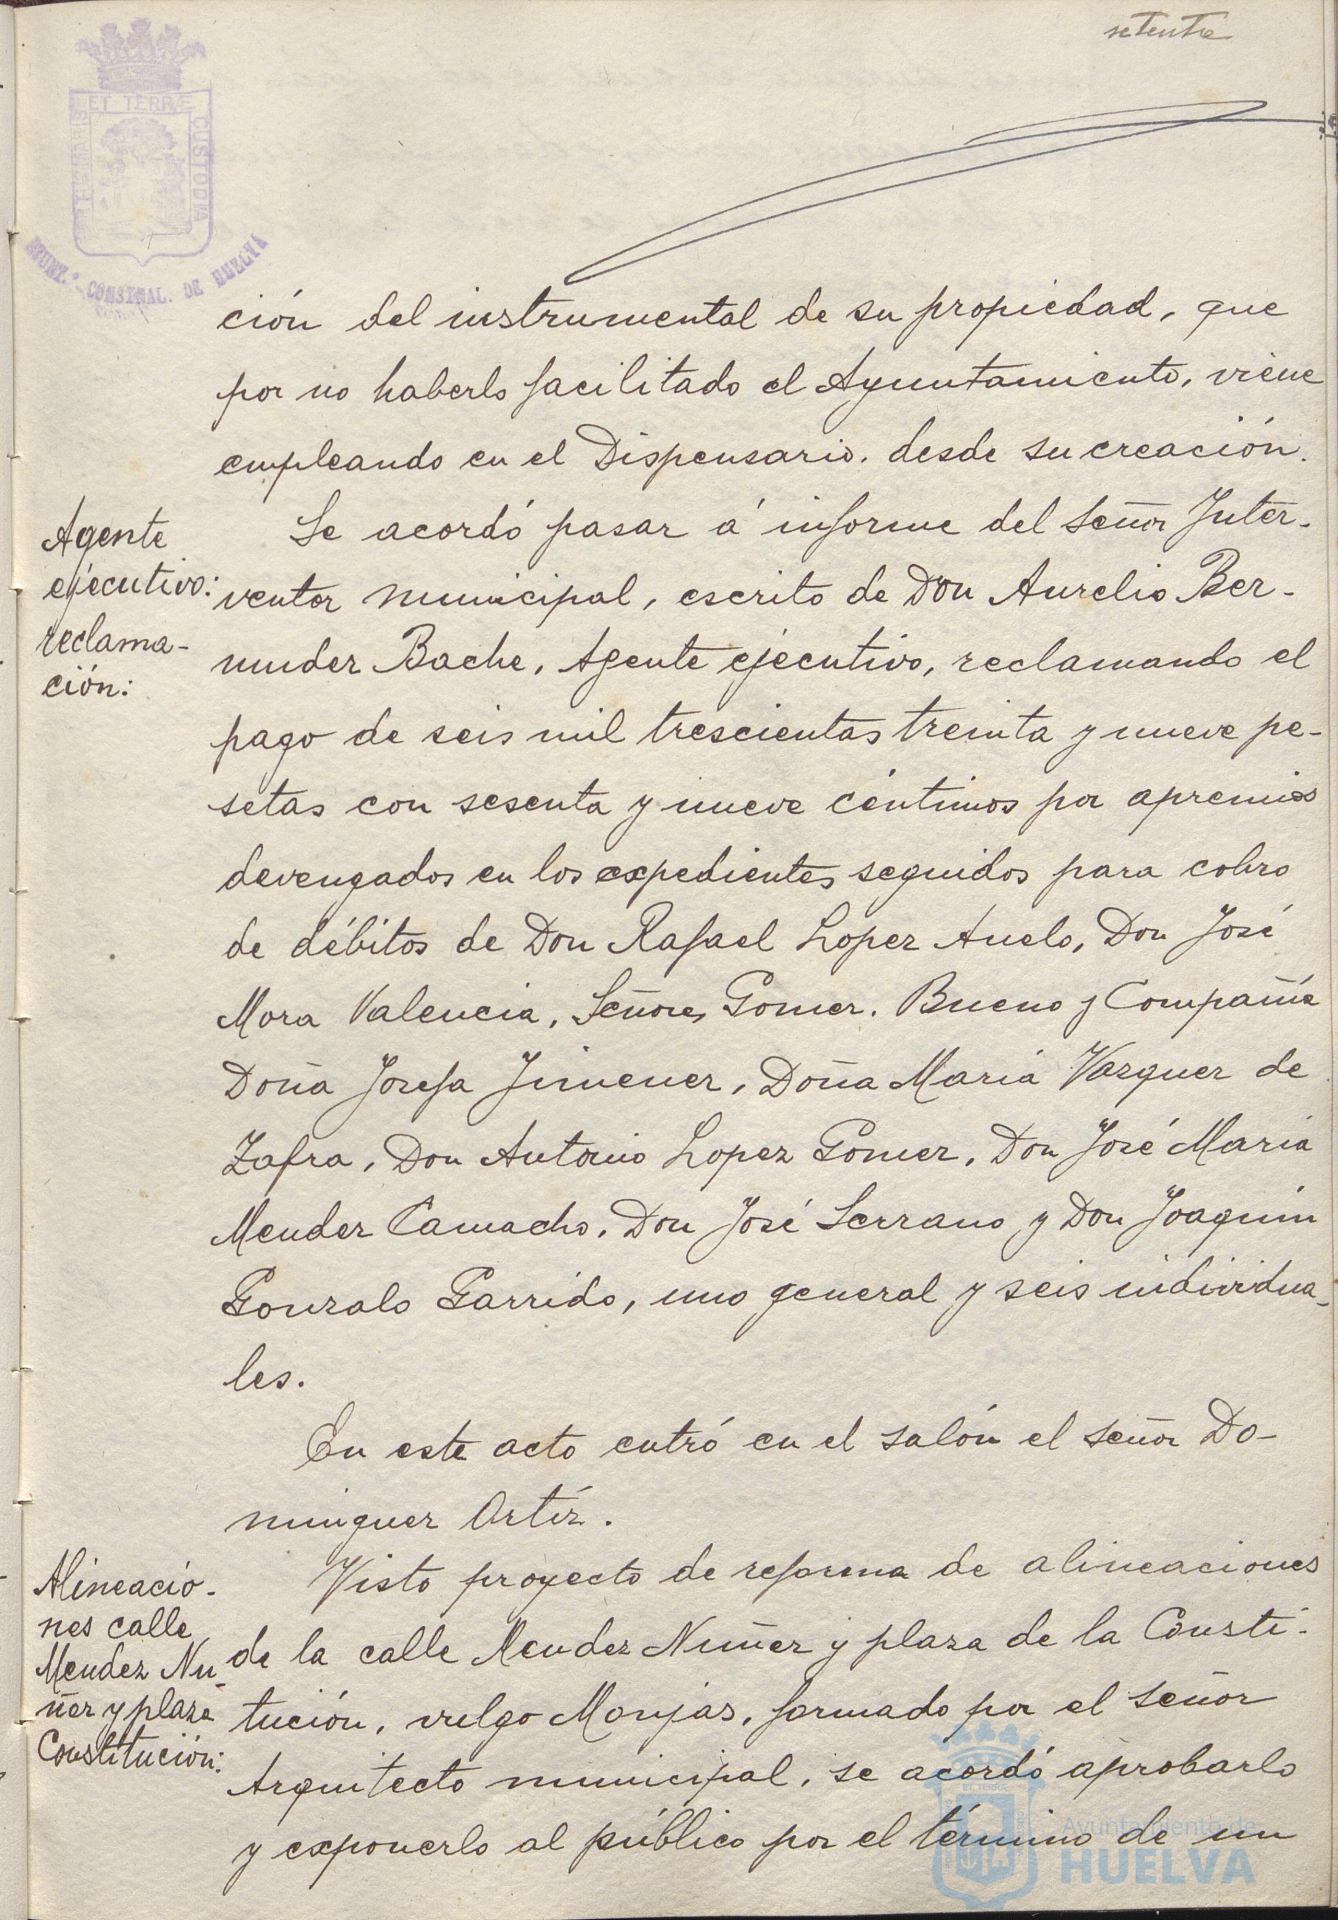 setenta
PORTUS MARIS ET TERRÆ CUSTODIA
AYUNT.º CONSTNAL. DE HUELVA
ción del instrumental de su propiedad, que
por no haberlo facilitado el Ayuntamiento, viene
empleando en el Dispensario, desde su creación.
Agente
ejecutivo:
reclama-
ción:
Se acordó pasar á informe del Señor Inter-
ventor municipal, escrito de Don Aurelio Ber-
mudez Bache, Agente ejecutivo, reclamando el
pago de seis mil trescientas treinta y nueve pe-
setas con sesenta y nueve céntimos por apremios
devengados en los expedientes seguidos para cobro
de débitos de Don Rafael Lopez Anelo, Don José
Mora Valencia, Señores Gomez, Bueno y Compañía
Doña Josefa Jimenez, Doña Maria Vazquez de
Zafra, Don Antonio Lopez Gomez, Don José Maria
Mendez Camacho, Don José Serrano y Don Joaquin
Gonzalo Garrido, uno general y seis individua-
les.
En este acto entró en el salón el señor Do-
minguez Ortíz.
Alineacio-
nes calle
Mendez Nu-
ñez y plaza
Constitución:
Visto proyecto de reforma de alineaciones
de la calle Mendez Nuñez y plaza de la Consti-
tución, vulgo Monjas, formado por el señor
Arquitecto municipal, se acordó aprobarlo
y exponerlo al público por el término de un
Ayuntamiento de
HUELVA